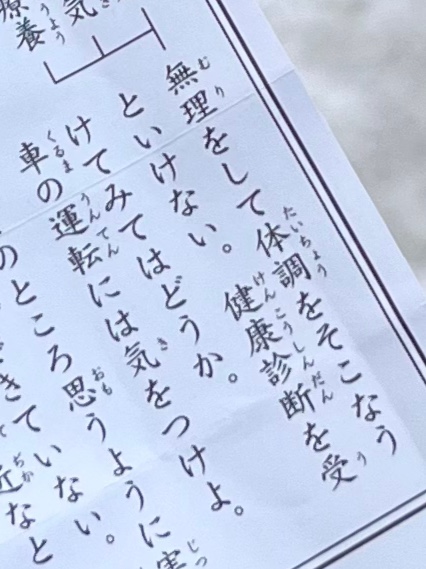 気
療養
無理をして体調をそこなう
といけない。健康診断を受
けてみてはどうか。
車の運転には気をつけよ。
のところ思うように実
できていない。
近なと